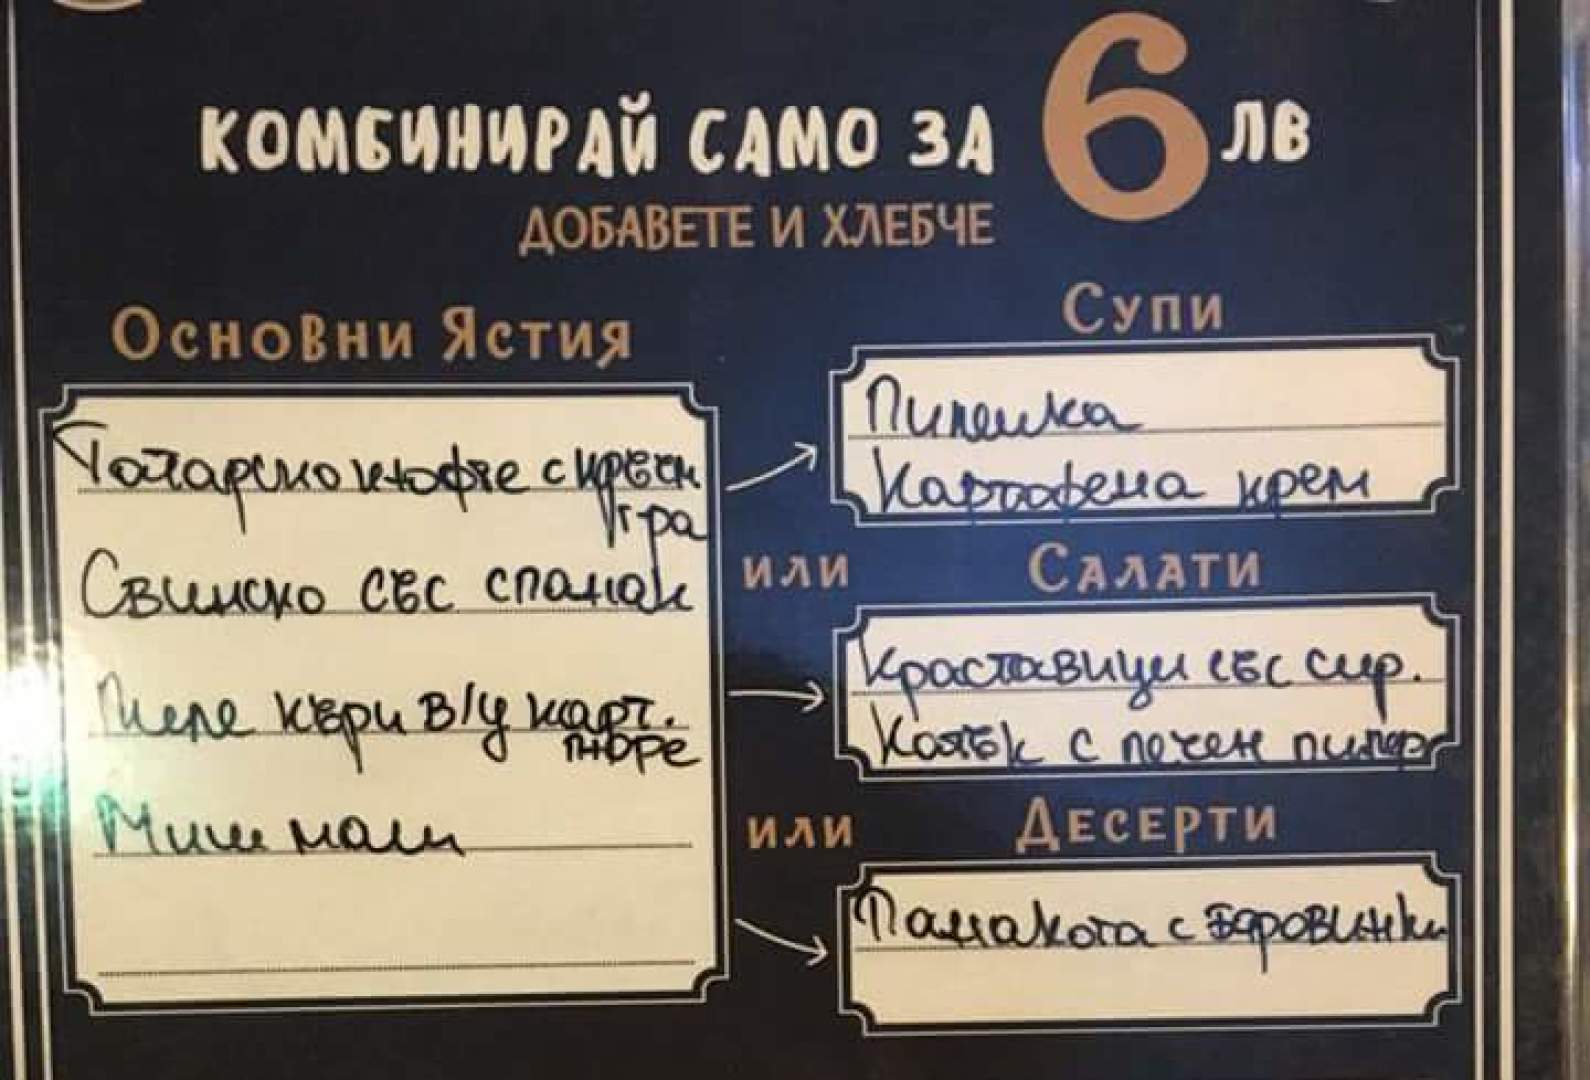 КОМБИНИРАЙ САМО ЗА 6 ЛВ
ДОБАВЕТЕ И ХЛЕБЧЕ
Основни Ястия
Татарско кюфте с пресен
гра
Свинско със спанак
Пиле къри в/у карт.
пюре
Миш маш
Супи
Пилешка
Картофена крем
или
Салати
Краставици със сир.
Котък с печен пипер
или
Десерти
Панакота с боровинки